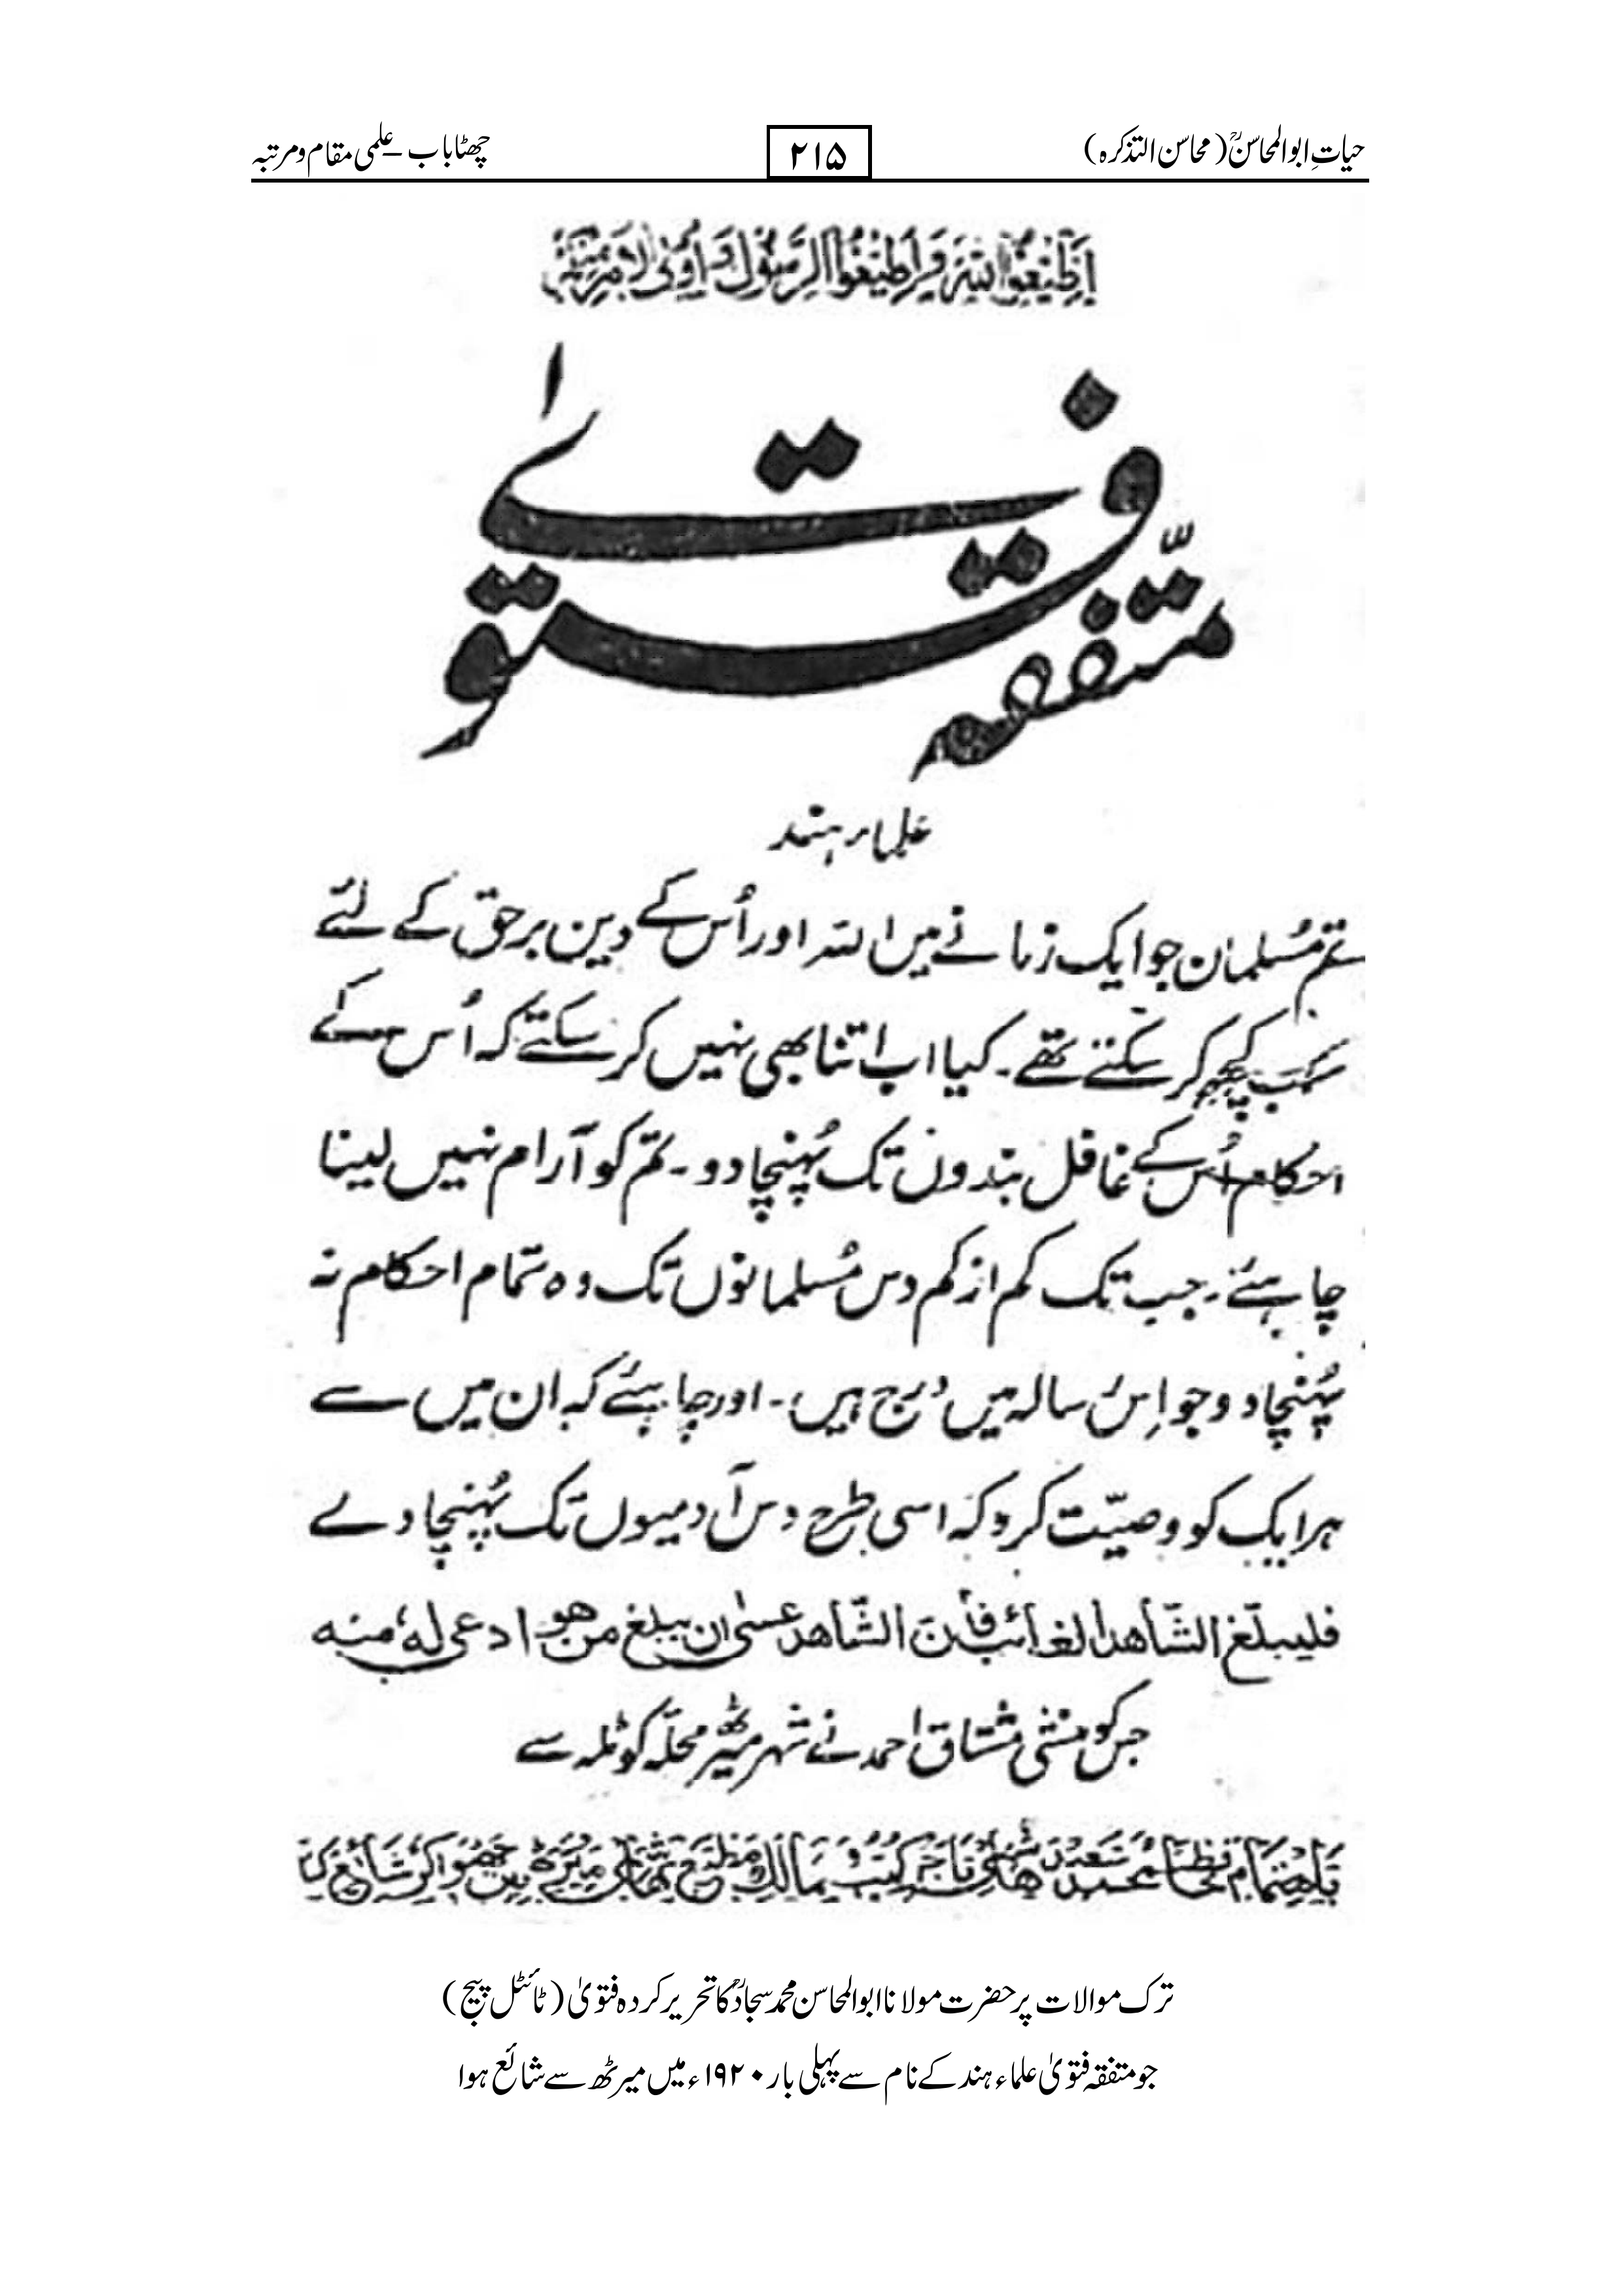 حیاتِ ابوالمحاسنؒ (محاسن التذکرہ)
۲۱۵
چھٹا باب – علمی مقام و مرتبہ
اَطِیْعُوا اللہَ وَ اَطِیْعُوا الرَّسُوْلَ وَ اُولِی الْاَمْرِ مِنْکُمْ
متفقہ فتویٰ
علماء ہند
تم مُسلمان جو ایک زمانے میں اللہ اور اُس کے دین برحق کے لئے
سب کچھ کر سکتے تھے۔ کیا اب اتنا بھی نہیں کر سکتے کہ اُس کے
احکام اُس کے غافل بندوں تک پُہنچا دو۔ تم کو آرام نہیں لینا
چاہئے۔ جب تک کم از کم دس مُسلمانوں تک وہ تمام احکام نہ
پُہنچا دو جو اِس رسالہ میں درج ہیں۔ اور چاہئے کہ ان میں سے
ہر ایک کو وصیّت کرو کہ اسی طرح دس آدمیوں تک پُہنچا دے
فلیبلّغ الشّاھد الغائب فاِنّ الشّاھد عسیٰ ان یبلغ من ھو ادعی لہٗ منہ
جس کو منشی مشتاق احمد نے شہر میرٹھ محلہ کوٹلہ سے
ترک موالات پر حضرت مولانا ابوالمحاسن محمد سجادؒ کا تحریر کردہ فتویٰ (ٹائٹل پیج)
جو متفقہ فتویٰ علماء ہند کے نام سے پہلی بار ۱۹۲۰ء میں میرٹھ سے شائع ہوا